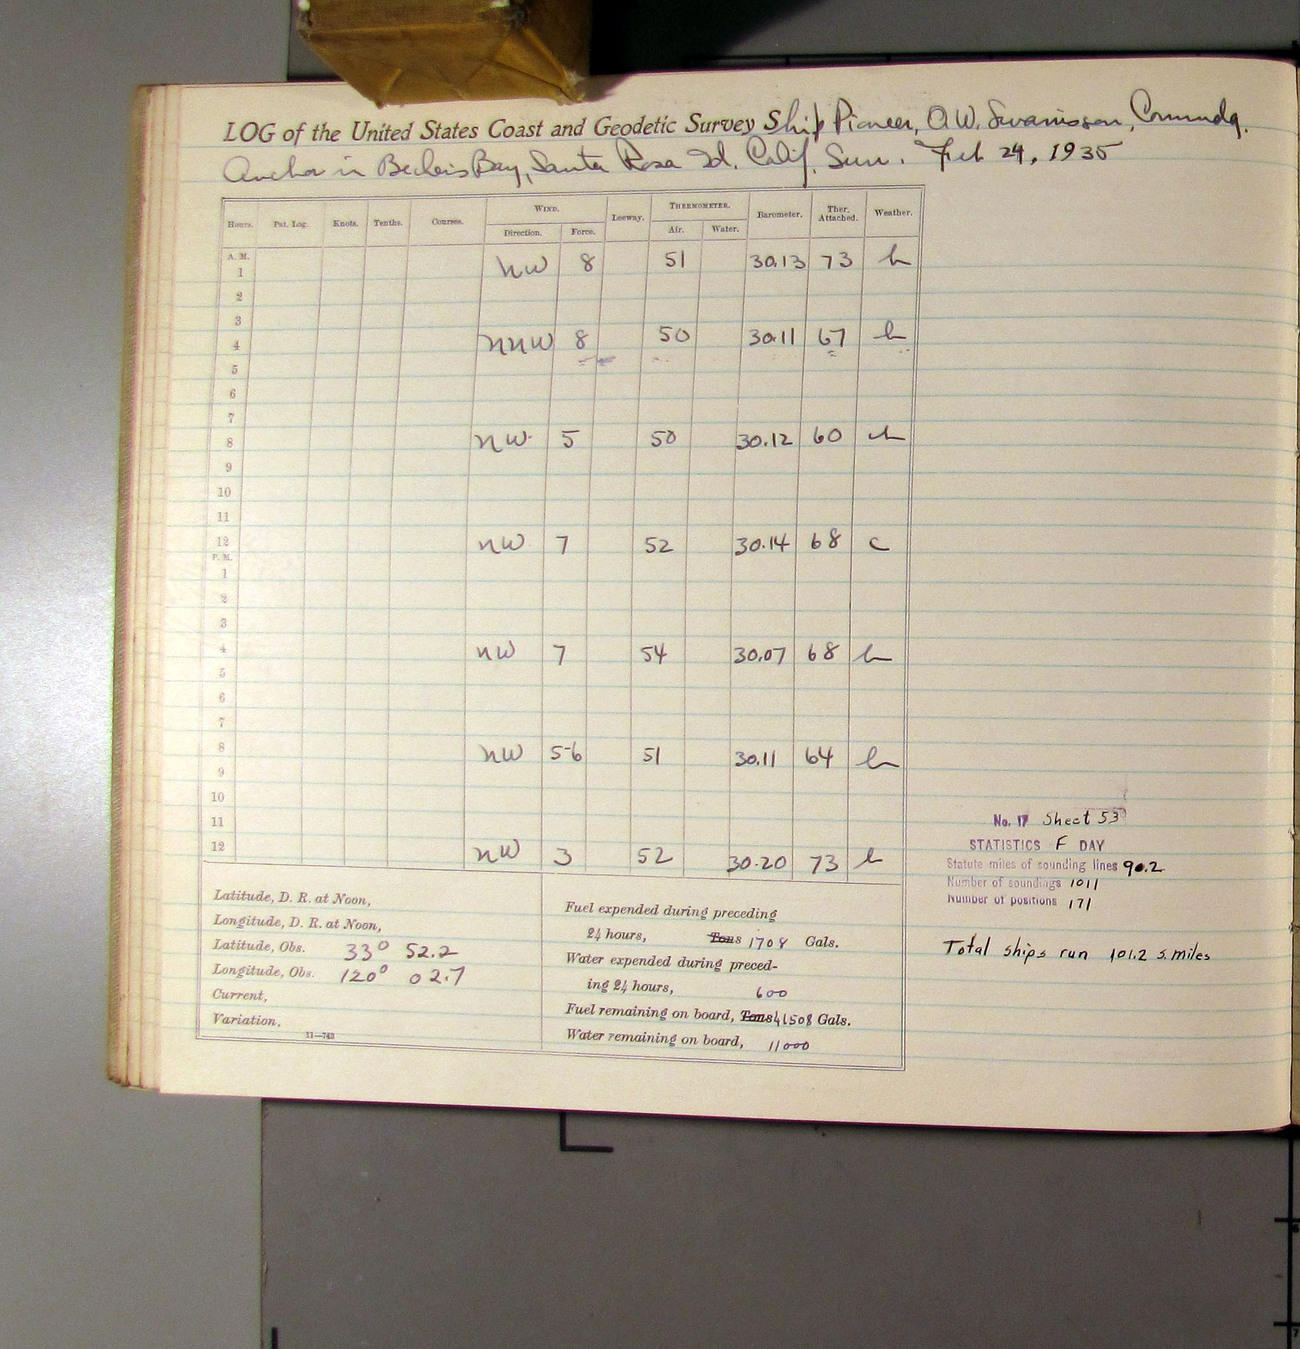 LOG of the United States Coast and Geodetic Survey Ship Pioneer, O.W. Swainson, Commndg.
Anchor in Bechers Bay, Santa Rosa Id. Calif. Sun. Feb 24, 1935
Hours. Pat. Log. Knots. Tenths. Courses. WIND. Leeway. THERMOMETER. Barometer. Ther. Attached. Weather.
Direction. Force. Air. Water.
A. M.
1 NW 8 51 30.13 73 b
2
3
4 NNW 8 50 30.11 67 b
5
6
7
8 NW 5 50 30.12 60 cb
9
10
11
12 NW 7 52 30.14 68 c
P. M.
1
2
3
4 NW 7 54 30.07 68 b
5
6
7
8 NW 5-6 51 30.11 64 b
9
10
11
12 NW 3 52 30.20 73 b
No. 17 Sheet 53
STATISTICS F DAY
Statute miles of sounding lines 90.2
Number of soundings 1011
Number of positions 171
Total ships run 101.2 s. miles
Latitude, D. R. at Noon,
Longitude, D. R. at Noon,
Latitude, Obs. 33° 52.2
Longitude, Obs. 120° 02.7
Current,
Variation,
11—743
Fuel expended during preceding
24 hours, Tons 1708 Gals.
Water expended during preced-
ing 24 hours, 600
Fuel remaining on board, Tons 41508 Gals.
Water remaining on board, 11000